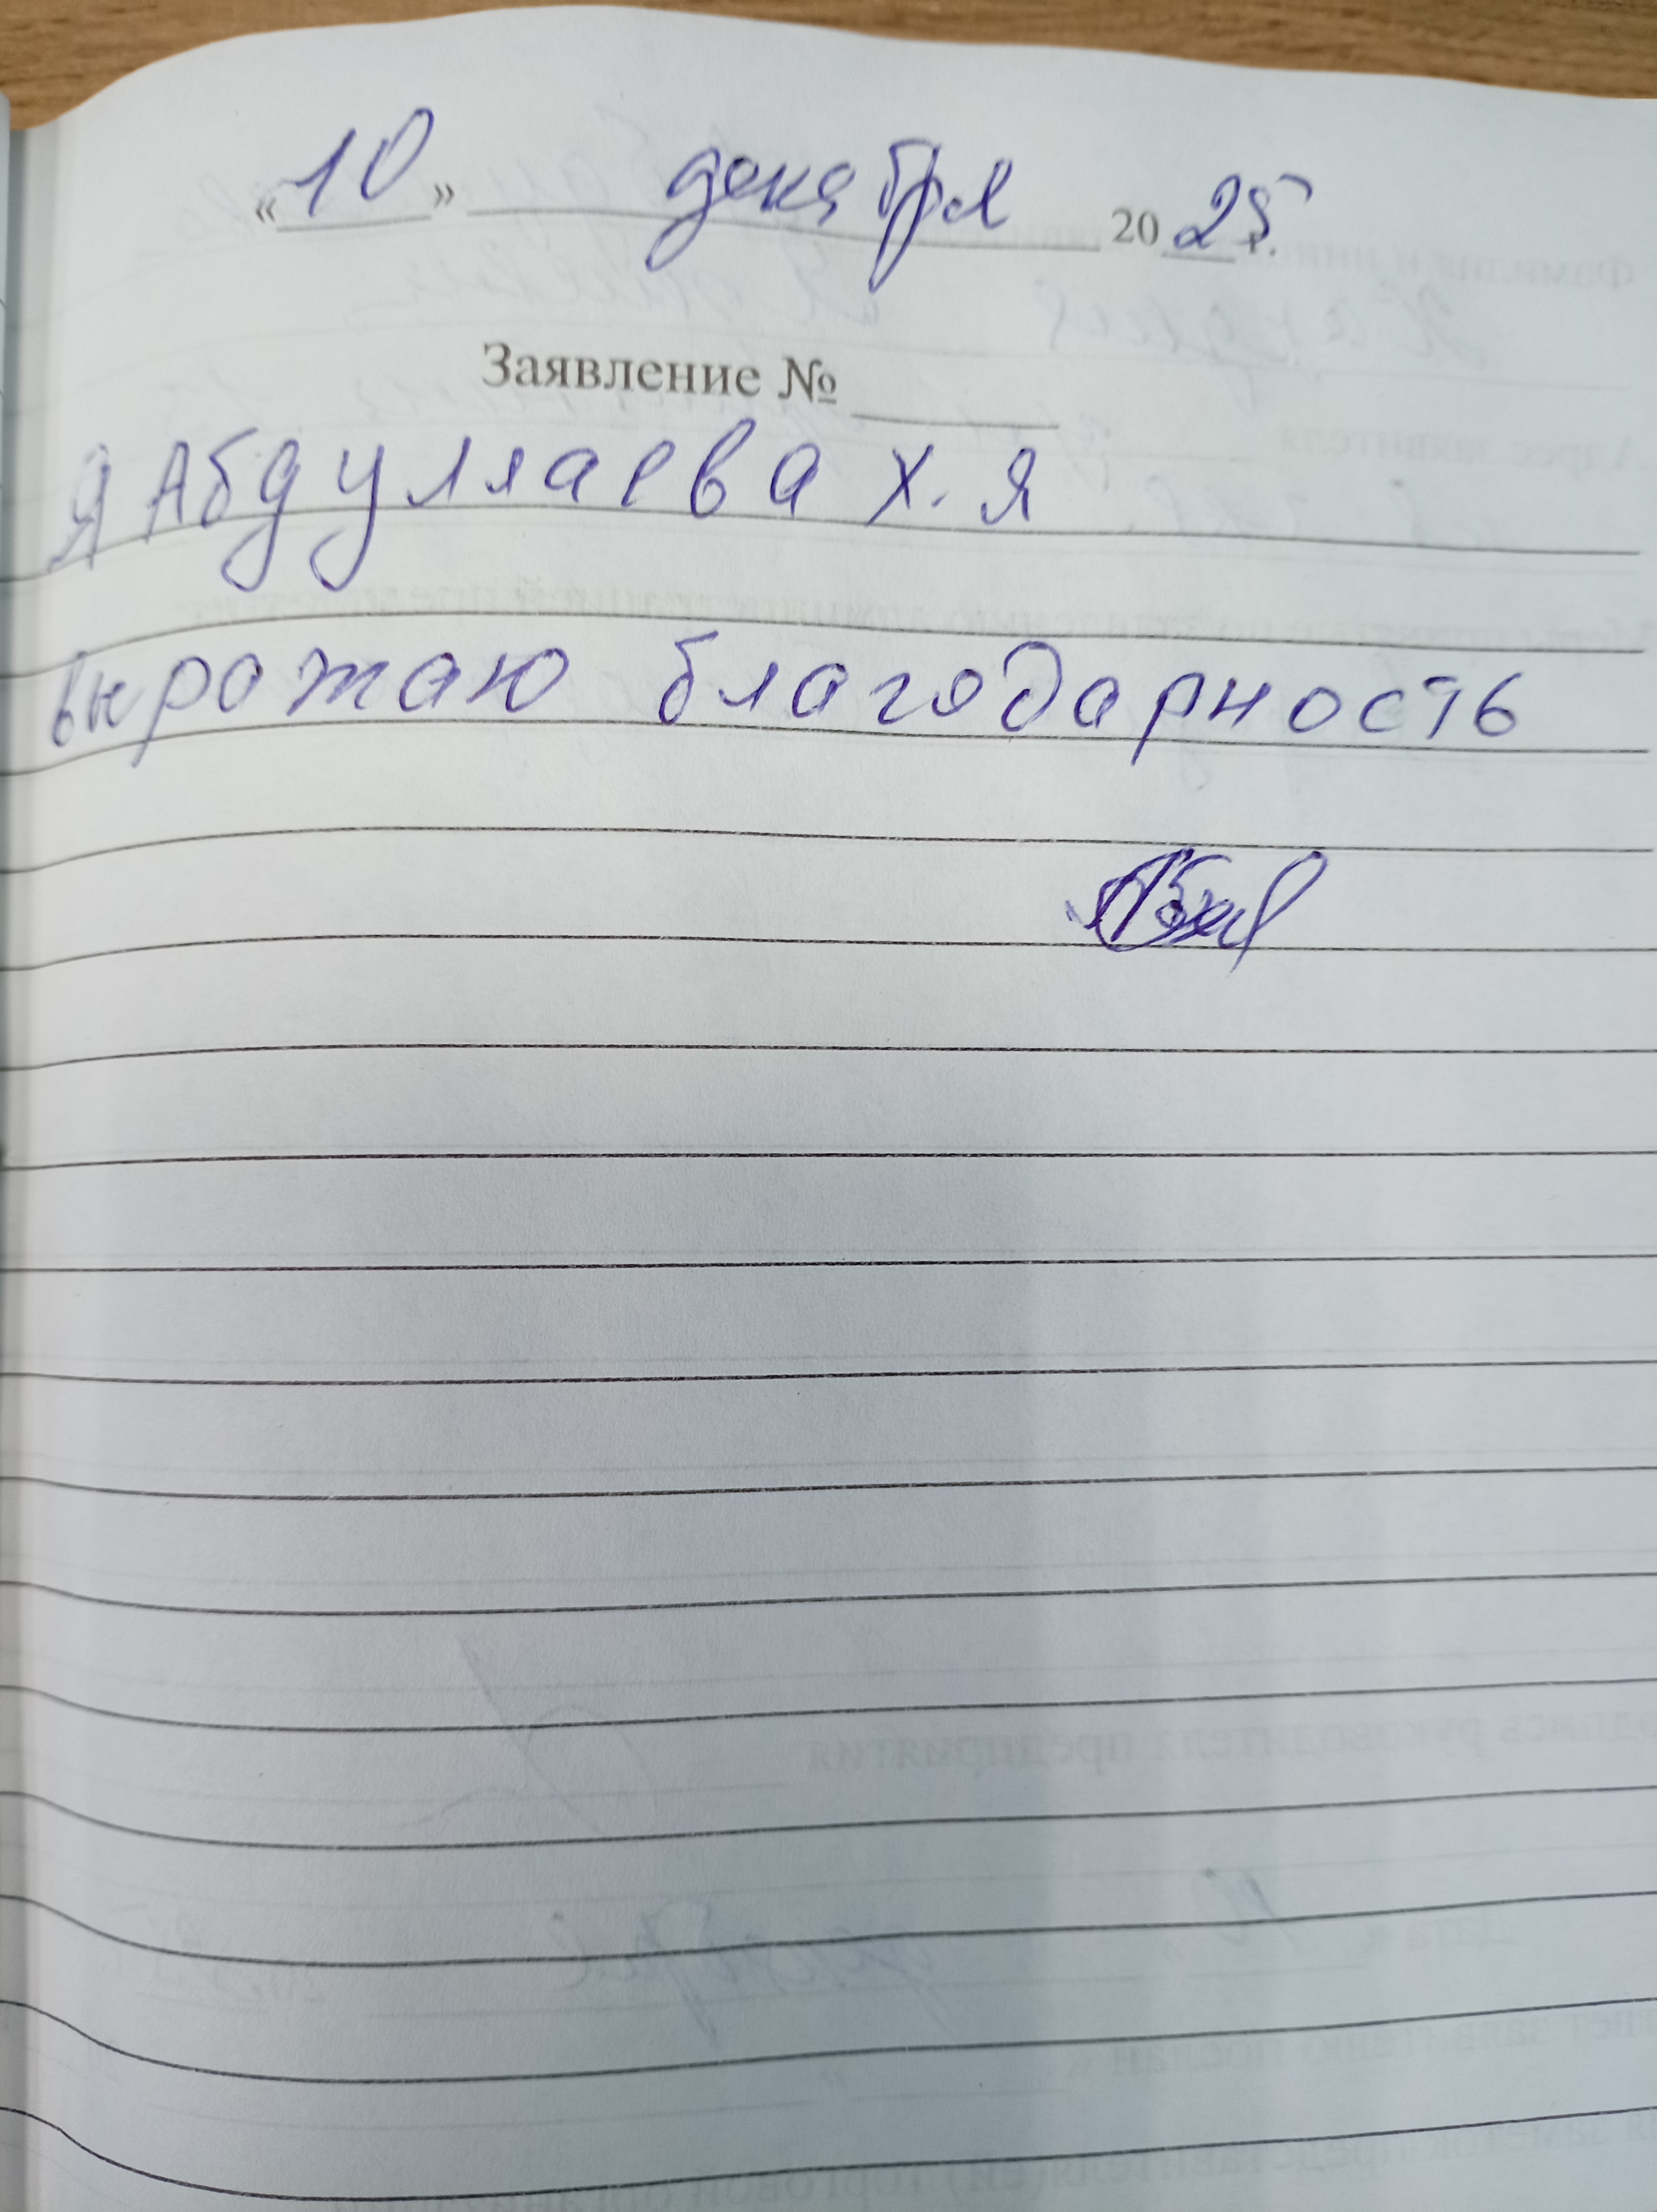 «10» декабря 2025 г.
Заявление №
Я Абдуллаева Х. Я
выражаю благодарность